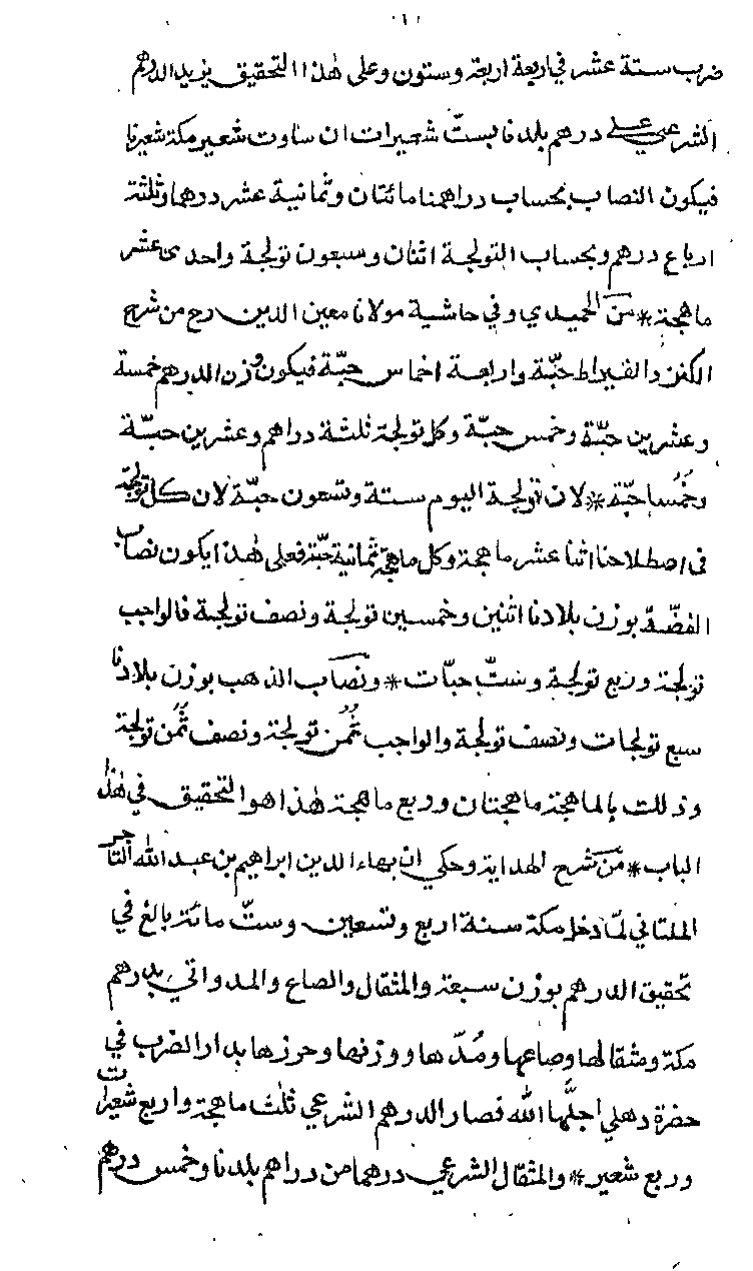 ضرب ستة عشر في اربعة اربعة وستون وعلى هٰذا التحقيق يزيد الدرهم
الشرعي على درهم بلدنا بستّ شعيرات ان ساوت شعير مكة شعيرنا
فيكون النصاب بحساب دراهمنا مائتان وثمانية عشر درهما وثلثة
ارباع درهم وبحساب التولجة اثنان وسبعون تولجة واحدى عشر
ماهجة * من الحميدي وفي حاشية مولانا معين الدين رح من شرح
الكنز والقيراط حبّة واربعة اخماس حبّة فيكون وزن الدرهم خمسة
وعشرين حبّة وخمس حبّة وكل تولجة ثلثة دراهم وعشرين حبّة
وخُمُسا حبّة * لان تولجة اليوم ستة وتسعون حبّة لان كل تولجة
في اصطلاحنا اثنا عشر ماهجة وكل ماهجة ثمانية حبّة فعلى هٰذا يكون نصاب
الفضّة بوزن بلادنا اثنين وخمسين تولجة ونصف تولجة فالواجب
تولجة وربع تولجة وستّ حبّات * ونصاب الذهب بوزن بلادنا
سبع تولجات ونصف تولجة والواجب ثُمُن تولجة ونصف ثُمُن تولجة
وذلك بالماهجة ماهجتان وربع ماهجة هٰذا هو التحقيق في هٰذا
الباب * من شرح الهداية وحكي ان بهاء الدين ابراهيم بن عبد الله التاجر
الملتاني لمّا دخل مكة سنة اربع وتسعين وستّ مائة بالغ في
تحقيق الدرهم بوزن سبعة والمثقال والصاع والمد واتي بدرهم
مكة ومثقالها وصاعها ومُدّها ووزنها وحرزها بدار الضرب في
حضرة دهلي اجلّها الله فصار الدرهم الشرعي ثلٰث ماهجة واربع شعيرات
وربع شعير * والمثقال الشرعي درهما من دراهم بلدنا وخمس درهم